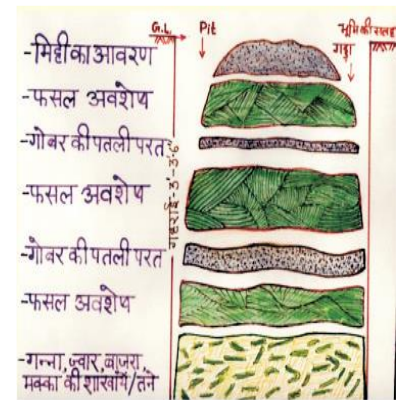 G.L.
Pit
भूमि की सतह
गड्ढा
-मिट्टी का आवरण
-फसल अवशेष
-गोबर की पतली परत
गहराई-3'-3'.6"
-फसल अवशेष
-गोबर की पतली परत
-फसल अवशेष
-गन्ना, ज्वार, बाजरा,
मक्का की शाखायें/तने